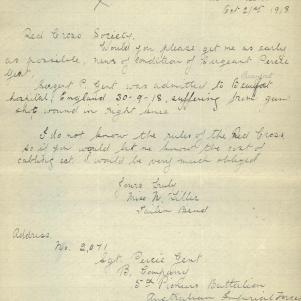 Oct 21st 1918
Red Cross Society.
Would you please get me as early
as possible, news of condition of Sergeant Percie
Gent.
Sergeant P. Gent was admitted to Beaufort
hospital, England 30-9-18, suffering from gun
shot wound in right knee
I do not know the rules of the Red Cross
so if you would let me know the cost of
cabling ect. I would be very much obliged
Yours truly
Miss M. Lillie
Tailem Bend
Address
No. 2,071
Sgt. Percie Gent
B. Company
5th Pioneers Battalion
Australian Imperial Force